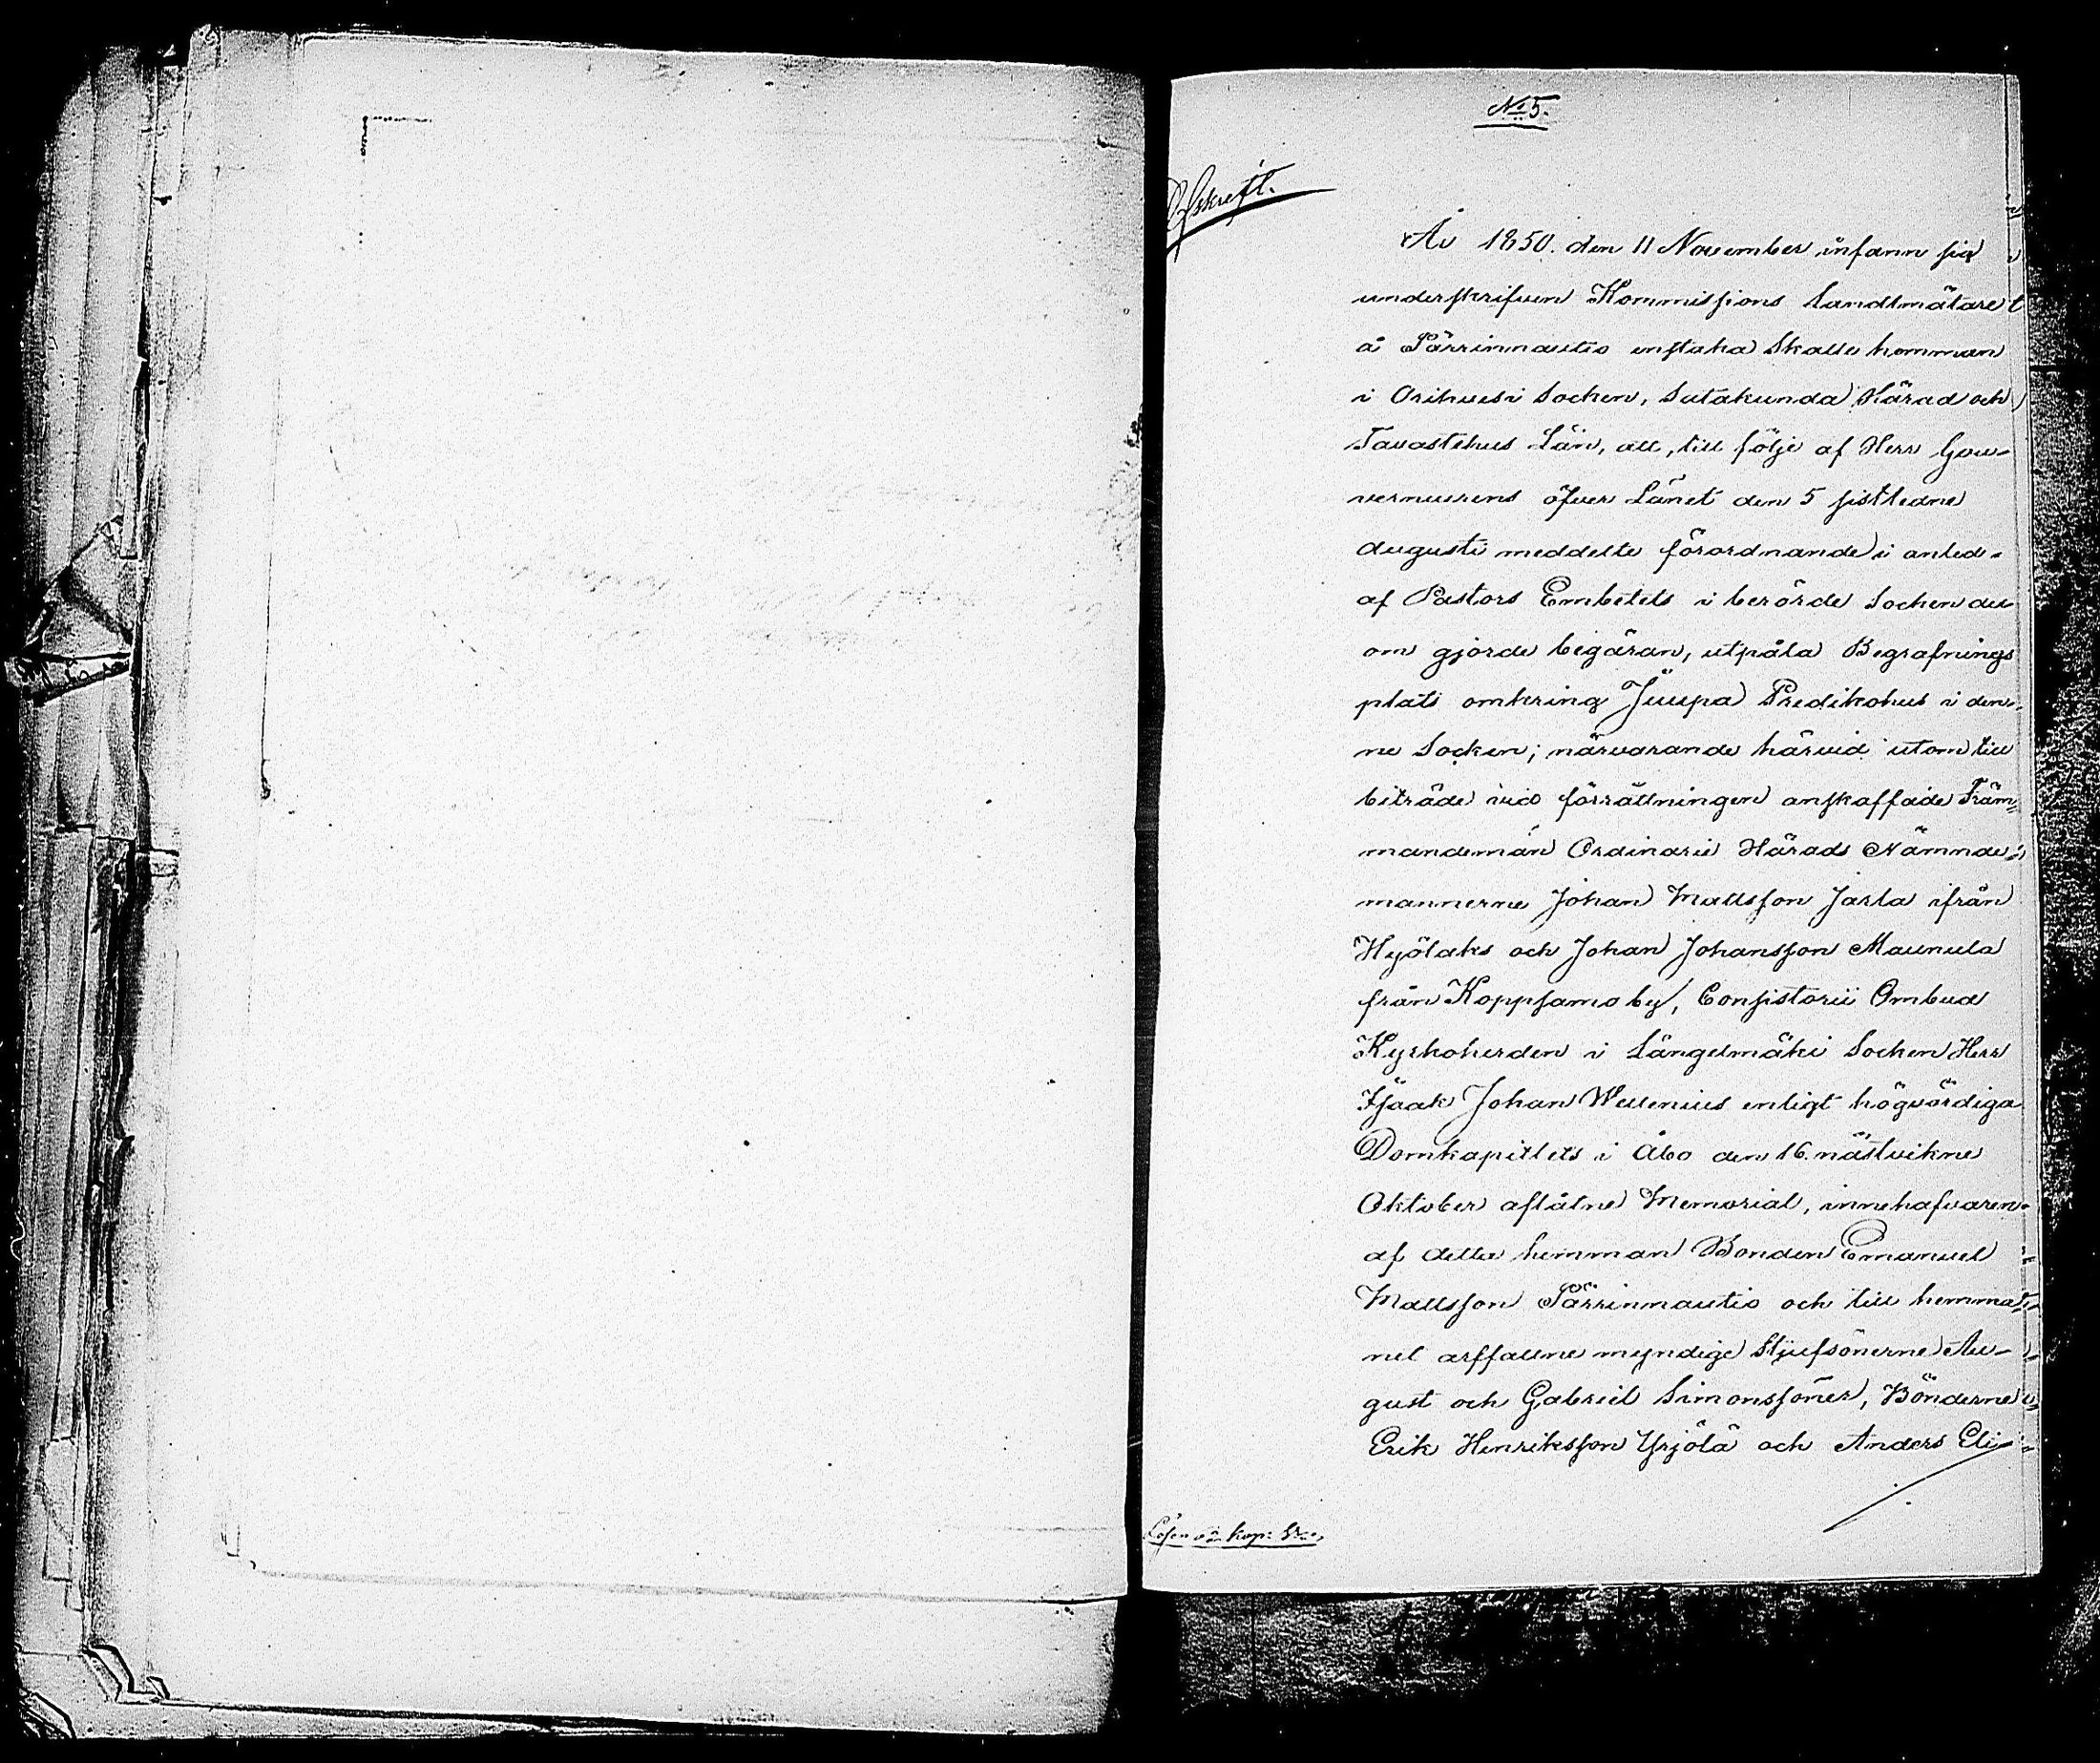 No 5.
Afskrift.
År 1850. den 11 November infann sig
underskrifven Kommissions Landtmätare
å Pärrinmautio enstaka Skatte hemman
i Orihvesi Socken, Satakunda Härad och
Tavastehus Län, att, till följe af Herr Gou-
verneurens öfver Länet den 5 sistledne
Augusti meddelte förordnande i anled.
af Pastors Embetets i berörde Socken der
om gjorde begäran, utpåla Begrafnings
plats omkring Juupa Predikohus i den-
ne Socken; närvarande härvid utom till
biträde vid förrättningen anskaffade Främ-
mandemän Ordinarie Härads Nämnde-
mannerne Johan Mattsson Jarla ifrån
Hyölaks och Johan Johansson Maunula
från Koppsamo by, Consistorii Ombud
Kyrkoherden i Längelmäki Socken Herr
Isaak Johan Wellenius enligt högvördiga
Domkapitlets i Åbo den 16. nästvikne
Oktober aflåtne Memorial, innehafvaren
af detta hemman Bonden Emanuel
Mattsson Pärrinmautio och till hemma-
net arffallne myndige Styfsönerne Au-
gust och Gabriel Simonssöner, Bönderne
Erik Henriksson Yrjölä och Anders Eli-
Lösen kop: